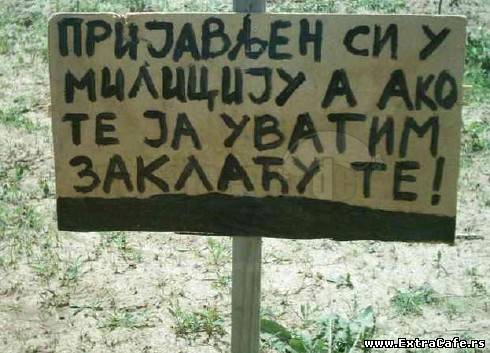 ПРИЈАВЉЕН СИ У
МИЛИЦИЈУ А АКО
ТЕ ЈА УВАТИМ
ЗАКЛАЋУ ТЕ!
www.ExtraCafe.rs